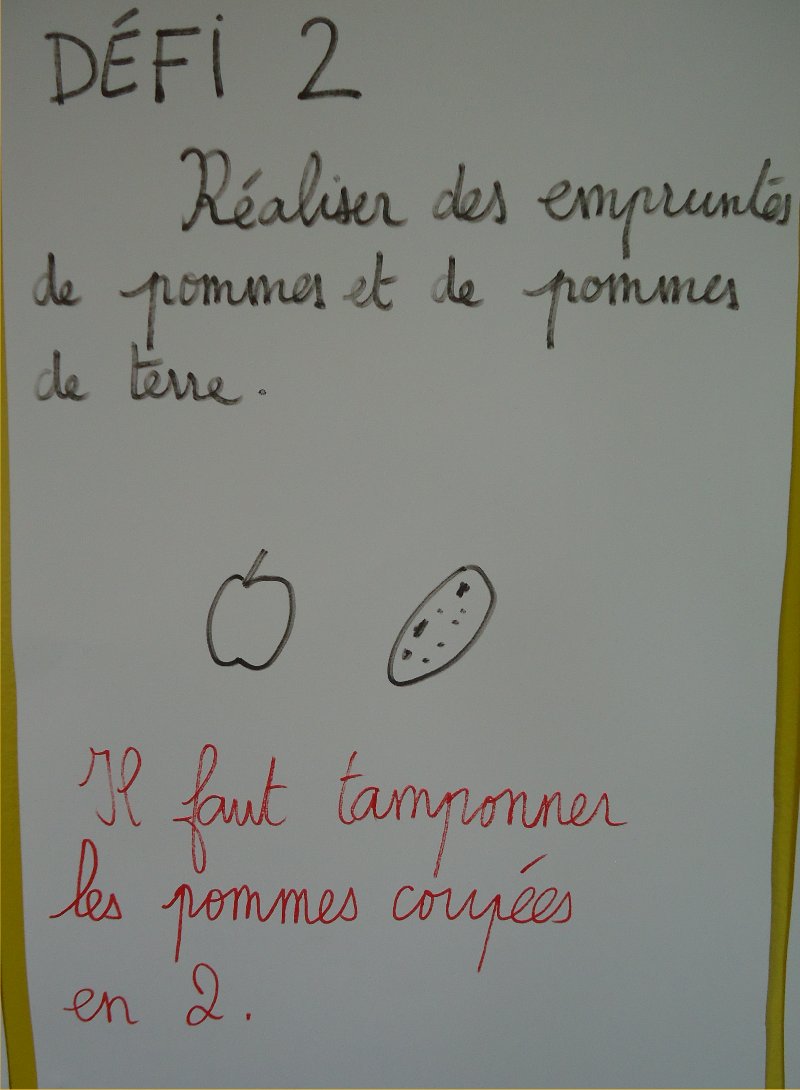 DÉFI 2
Réaliser des empruntés
de pommes et de pommes
de terre.
Il faut tamponner
les pommes coupées
en 2.